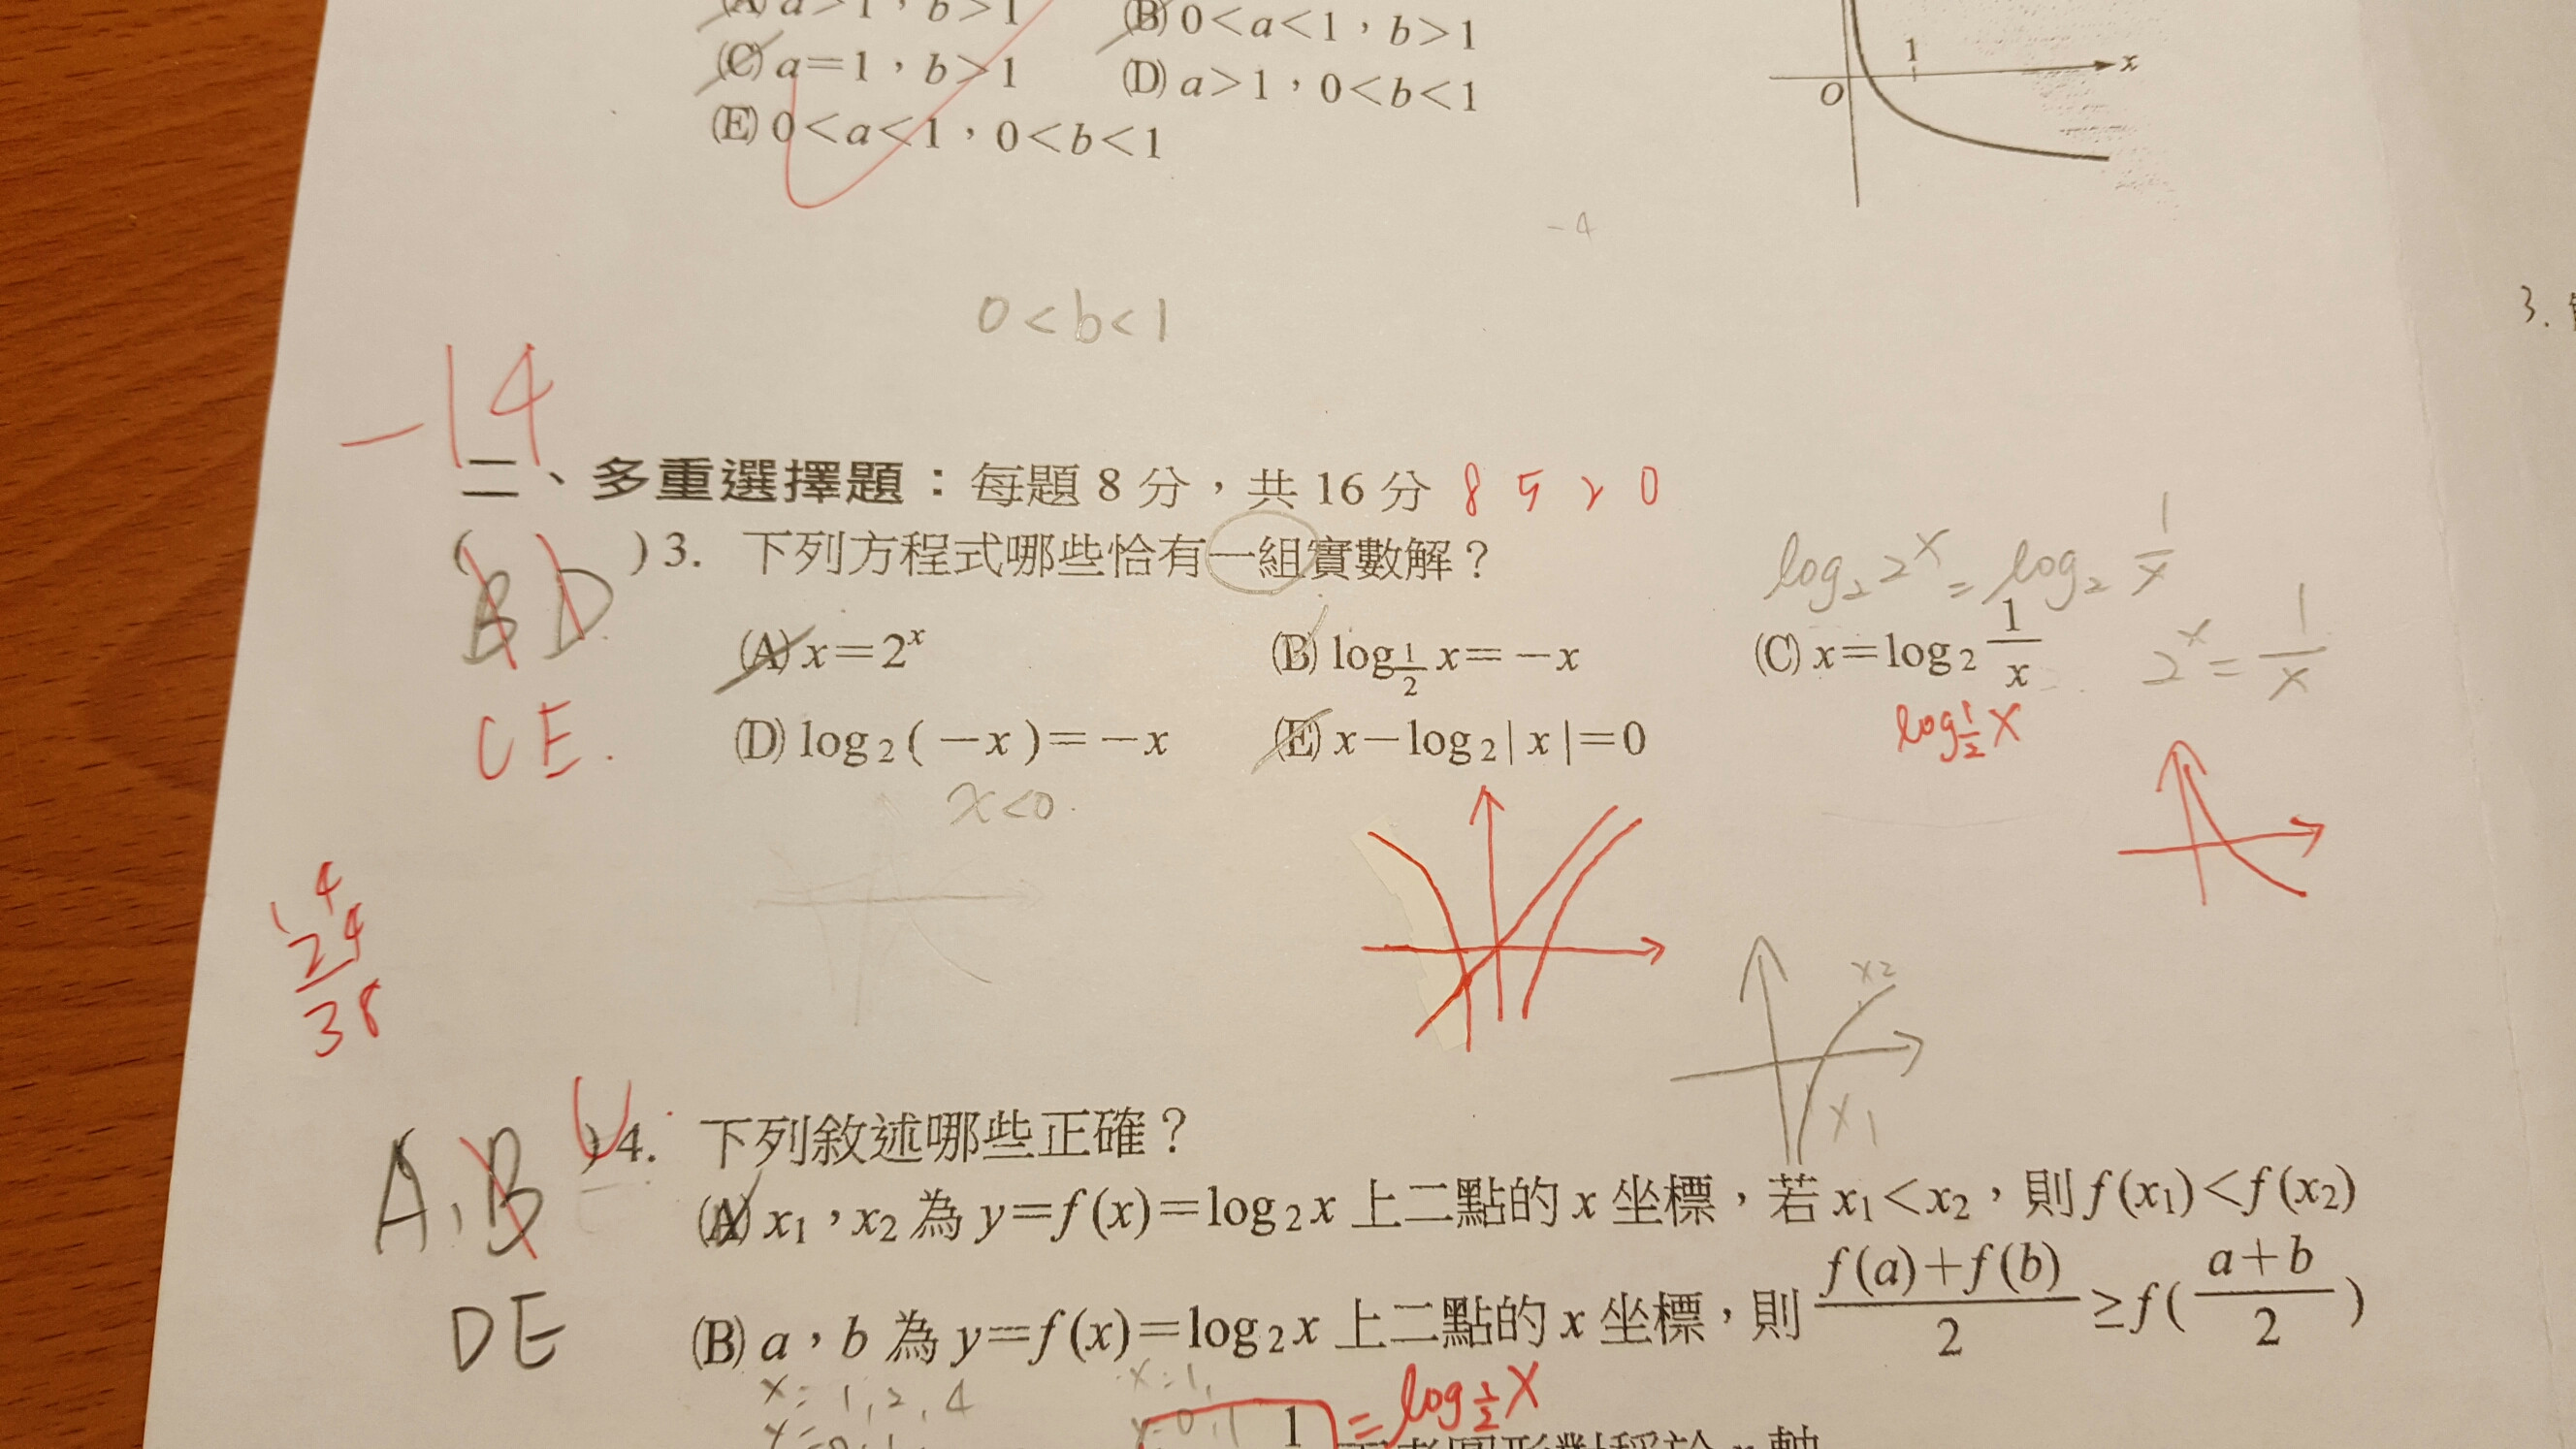 (A) a>1，b>1 (B) 0<a<1，b>1
(C) a=1，b>1 (D) a>1，0<b<1
(E) 0<a<1，0<b<1
1
x
O
-4
0<b<1
3.
-14
二、多重選擇題：每題 8 分，共 16 分 8 5 2 0
(BD)3. 下列方程式哪些恰有一組實數解？
log₂2ˣ=log₂1/x
(A) x=2ˣ (B) log_{1/2} x=-x (C) x=log₂ 1/x 2ˣ=1/x
CE.
(D) log₂(-x)=-x (E) x-log₂|x|=0 log_{1/2} x
x<0
14
24
38
x2
x1
(A,B
DE
)4. 下列敘述哪些正確？
(A) x₁，x₂ 為 y=f(x)=log₂x 上二點的 x 坐標，若 x₁<x₂，則 f(x₁)<f(x₂)
(B) a，b 為 y=f(x)=log₂x 上二點的 x 坐標，則 (f(a)+f(b))/2 ≥f((a+b)/2)
x=1,2,4 x=1,
y=0,1
1
=log_{1/2} x